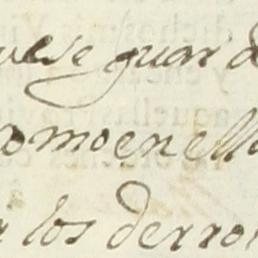 uese guard
omoenello
los derro